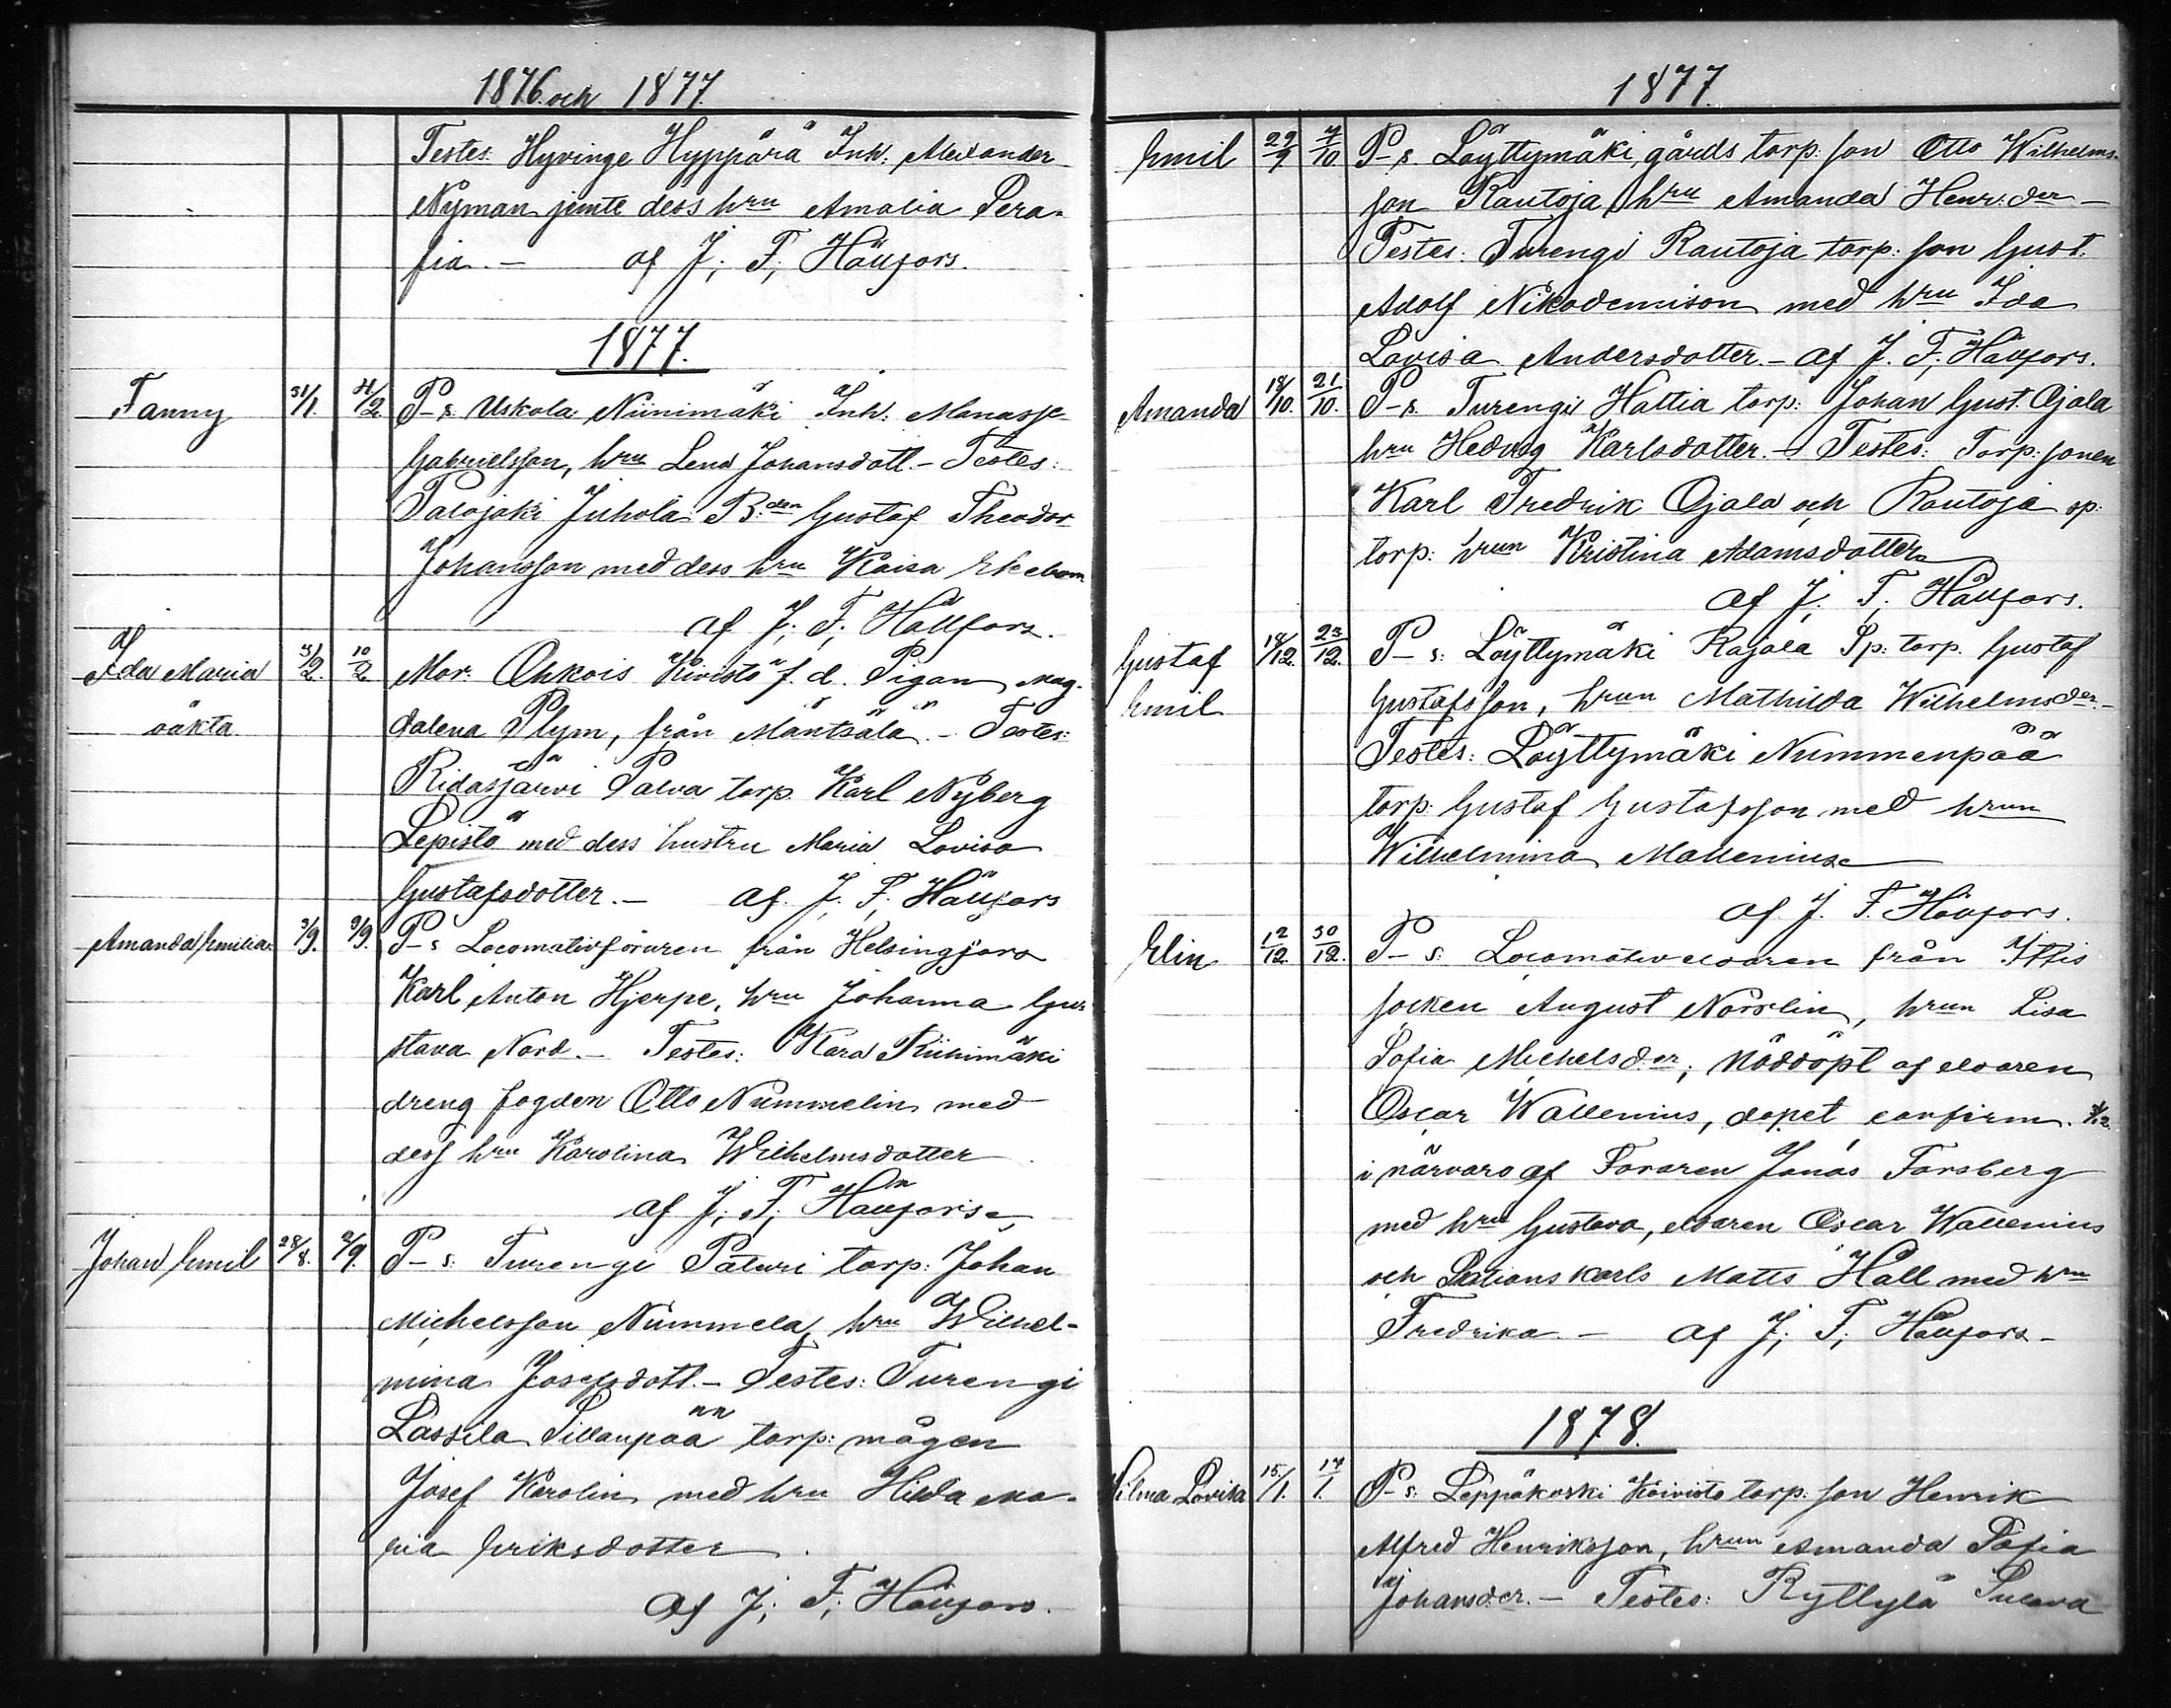 1876 och 1877.
Testes: Hyvinge Hyppärä Inh. Alexander
Nyman jemte dess hru Amalia Sera-
fia. — af J. F. Hällfors.
1877.
Fanny 31/1. 4/2. P-s. Uskola Niinimäki Inh. Manasse
Gabrielsson, hru Lena Johansdott. – Testes:
Palojoki Juhola B:den Gustaf Theodor
Johansson med dess hru Kaisa Ekebom
af J. F. Hällfors.
Ida Maria 3/2. 10/2 Mor. Ohkois Kivistö f. d. Pigan Mag-
oäkta. dalena Plym, från Mäntsälä. – Testes:
Ridasjärvi Palva torp. Karl Nyberg
Lepistö med dess hustru Maria Lovisa
Gustafsdotter. — af J. F. Hällfors
Amanda Emilia 3/9. 9/9. P-s Locomotivföraren från Helsingfors
Karl Anton Hjerpe, hru Johanna Gus-
tava Nord. – Testes: Kara Riihimäki
dreng fogden Otto Nummelin med
dess hru Karolina Wilhelmsdotter
af J. F. Hällfors.
Johan Emil 28/8. 2/9. P-s: Turengi Paturi torp: Johan
Michelsson Nummela, hru Wilhel-
mina Josefsdott. – Testes: Turengi
Lassila Sillanpää torp: mågen
Josef Karolin med hru Hilda Ma-
ria Eriksdotter.
af J. F. Hällfors.
1877.
Emil 29/9 7/10 P-s. Löyttymäki gårds torp: son Otto Wilhelms-
son Rautoja, hru Amanda Henr:der –
Testes: Turengi Rautoja torp: son Gust.
Adolf Nikodemison med hru Ida
Lovisa Andersdotter. – af J. F. Hällfors.
Amanda 18/10. 21/10. P-s. Turengi Hattia torp: Johan Gust. Ojala
hru Hedvig Karlsdotter. – Testes: Torp: sonen
Karl Fredrik Ojala och Rautoja sp:
torp: hrun Kristina Adamsdotter
af J. F. Hällfors.
Gustaf 18/12. 23/12. P-s: Löyttymäki Rajala Sp: torp. Gustaf
Emil Gustafsson, hrun Mathilda Wilhelmsder. –
Testes: Löyttymäki Nummenpää
torp: Gustaf Gustafsson med hrun
Wilhelmina Mallenius
af J. F. Hällfors.
Elin 12/12. 30/12. P-s: Locomotiveldaren från Ittis
socken August Norrlin, hrun Lisa
Sofia Michelsd:er; Nöddöpt af eldaren
Oscar Wallenius, dopet confirm.
i närvaro af Föraren Jonas Forsberg
med hru Gustava, eldaren Oscar Wallenius
och Stationskarls Matts Häll med hru
Fredrika. — af J. F. Hällfors –
1878.
Hilma Lovisa 15/1. 17/1. P-s: Leppäkoski Koivisto torp: son Henrik
Alfred Henriksson, hrun Amanda Sofia
Johansd:er. — Testes: Ryttylä